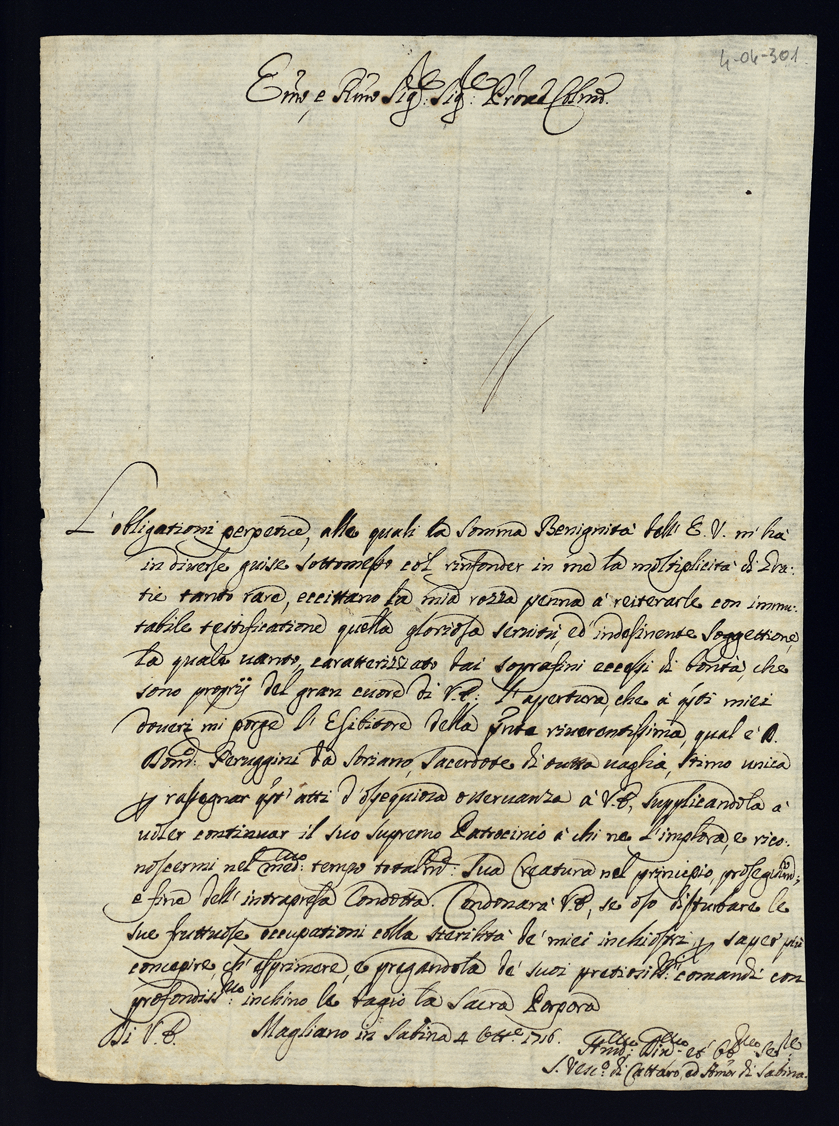 4-04-301
Em̃o, e Rm̃o Sig.re Sig.re Prõne Colm̃o.
L'obligationi perpetue, alle quali la somma Benignità dell' E. V. m'hà
in diverse guise sottomesso col rinfonder in me la moltiplicità di Gra:
tie tanto rare, eccittano la mia rozza penna à reiterarle con immu:
tabile testificatione quella gloriosa servitù, ed' indefinente soggettione,
la quale uanto, caratterizzato dai soprafini eccessi di bontà che
sono proprij del gran cuore di V. E.: L'apertura, che à q̃sti miei
doveri mi porge l' Esibitore della p̃nte riverentissima, qual è D.
Dom.: Peruggini da Soriano, Sacerdote di tutta uaglia, stimo unica
ꝑ rassegnar q̃st' atti d'ossequiosa osseruanza à V. E., supplicandola à
uoler continuar il suo supremo Patrocinio à chi ne l'implora, e rico:
noscermi nel med.mo: tempo total.te: sua Creatura nel principio, proseguim.to,
e fine dell' intrapresa Condotta. Condonarà V. E., se oso disturbare le
sue fruttuose occupationi colla sterilità de' miei inchiostri ꝑ saper più
concepire ch' esprimere, e pregandola de' suoi pretiosiss.mi comandi con
profondiss.mo: inchino le bagio la Sacra Porpora
Di V. E. Magliano in Sabina 4 Ott.e 1716.
Hum.mo Div.mo et Ob.mo Se.re
S. Vesc.o di Cattaro, ed Am̃or di Sabina.